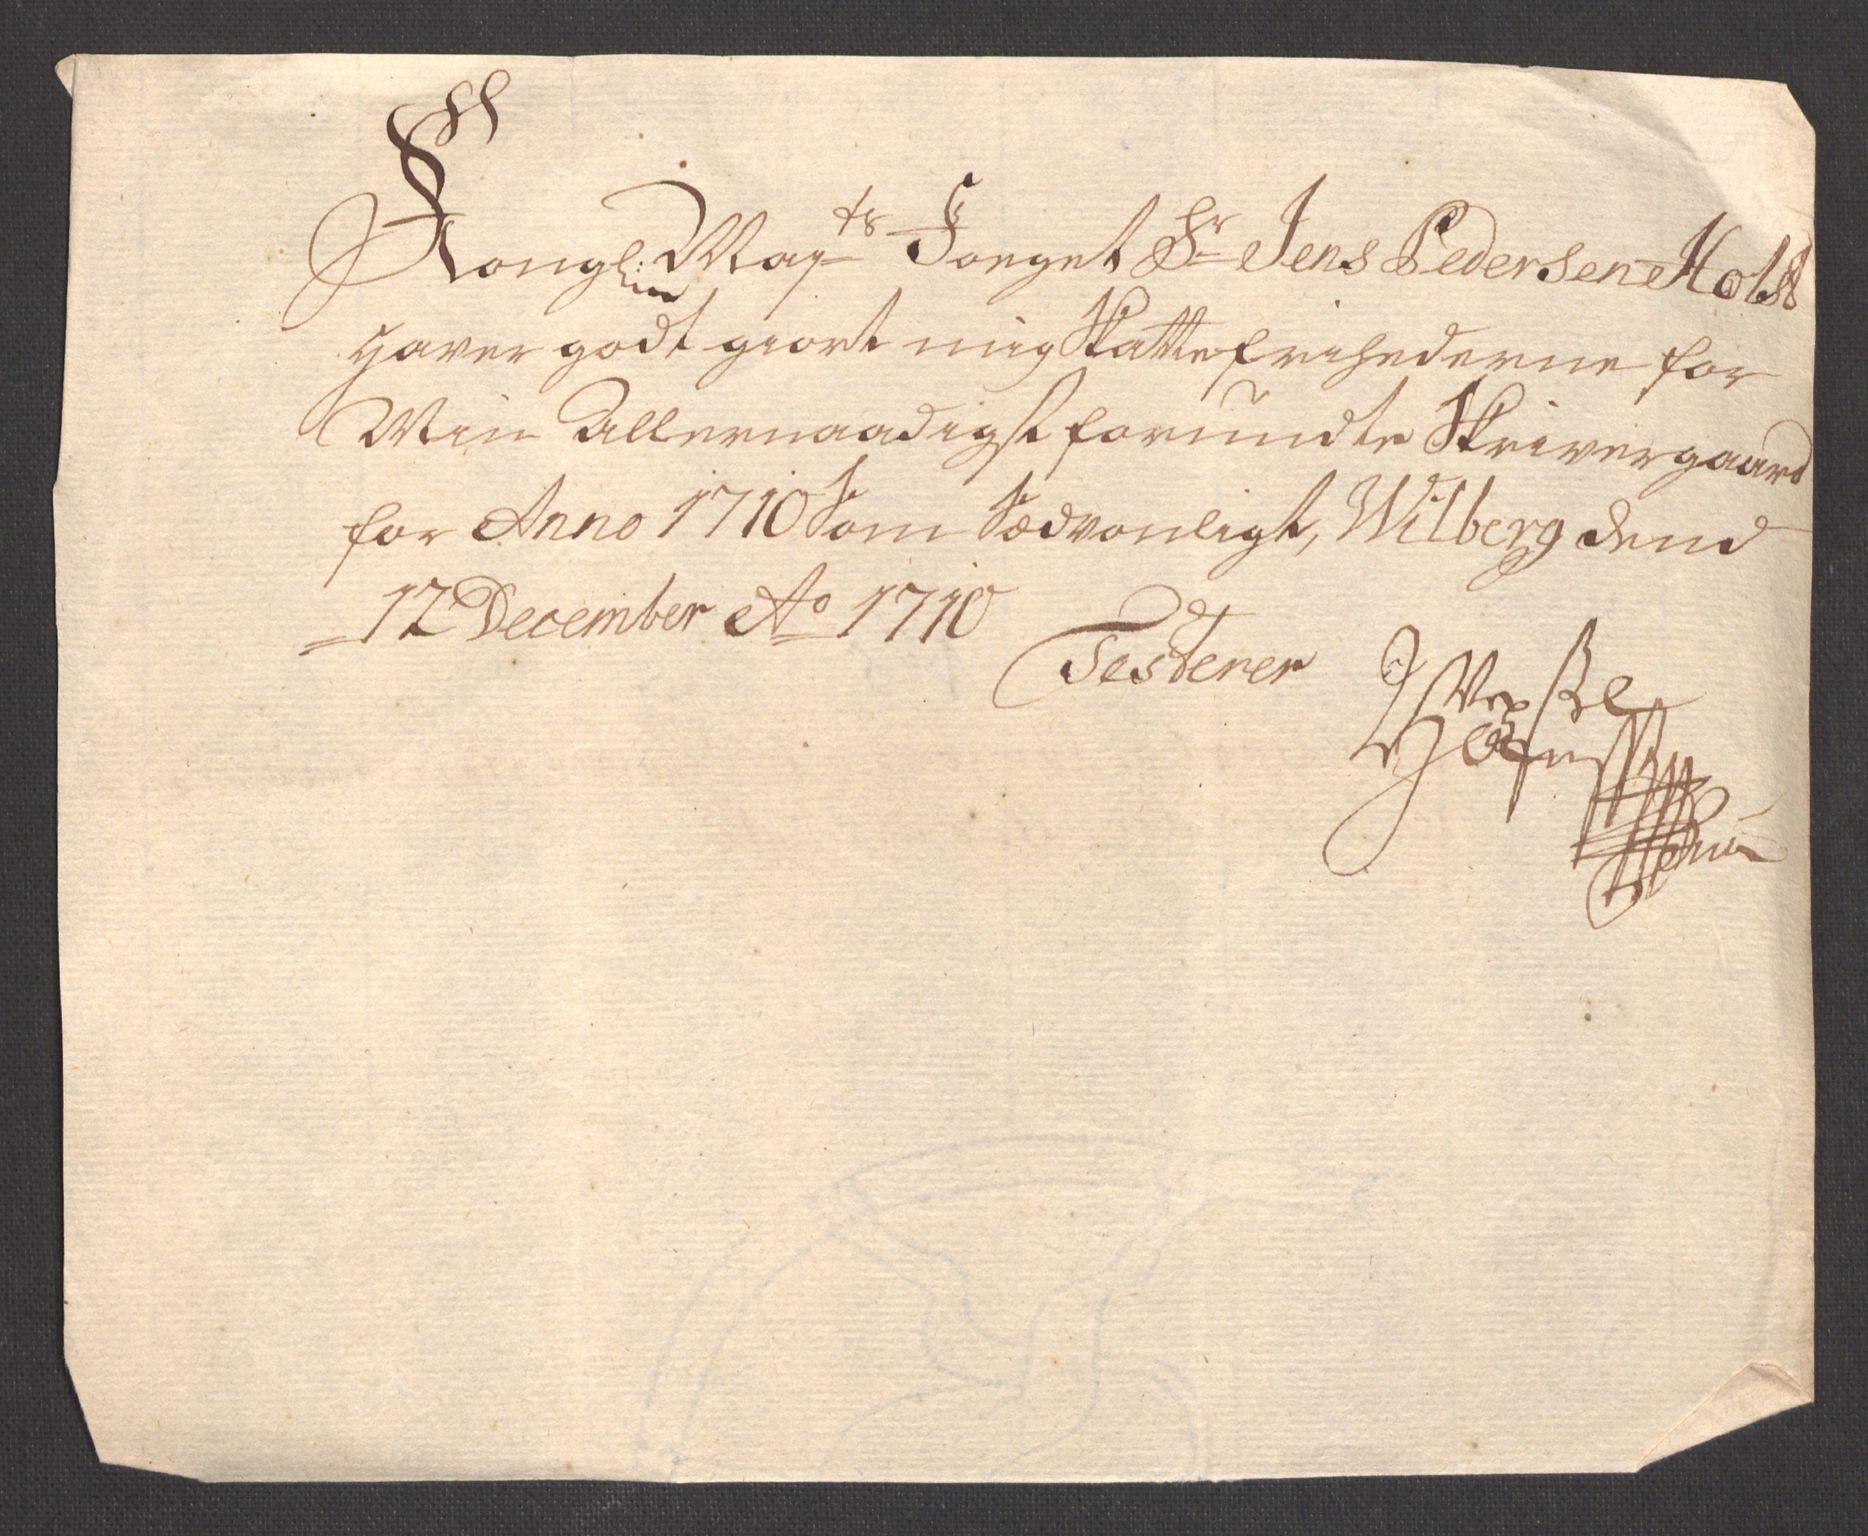 Kongl: May^ts Foeget Hr Jens Pedersen Holst
haver godt giort mig Skatte frihederne for
Min Allernaadigst forundte Skrivergaard
for Anno 1710 Som Sædvonligt, Wilberg dend
12 December Ao 1710
Testerer